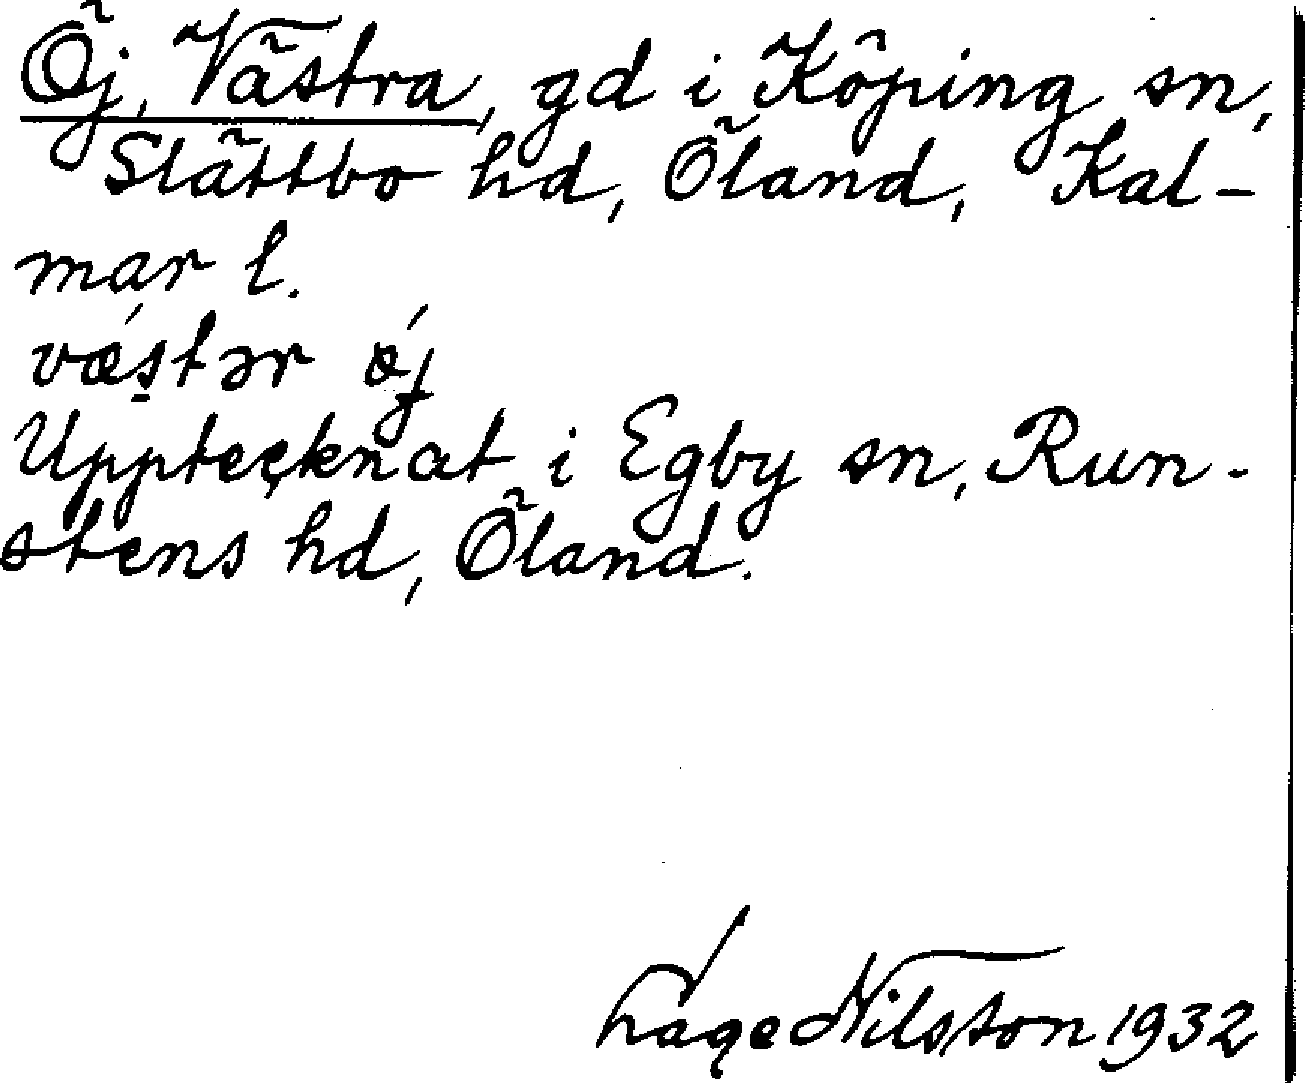 Öj, Västra, gd i Köping sn,
Slättbo hd, Öland, Kal-
mar l.
vǽstər ǿj
Upptecknat i Egby sn, Run-
stens hd, Öland.
Lage Nilsson 1932